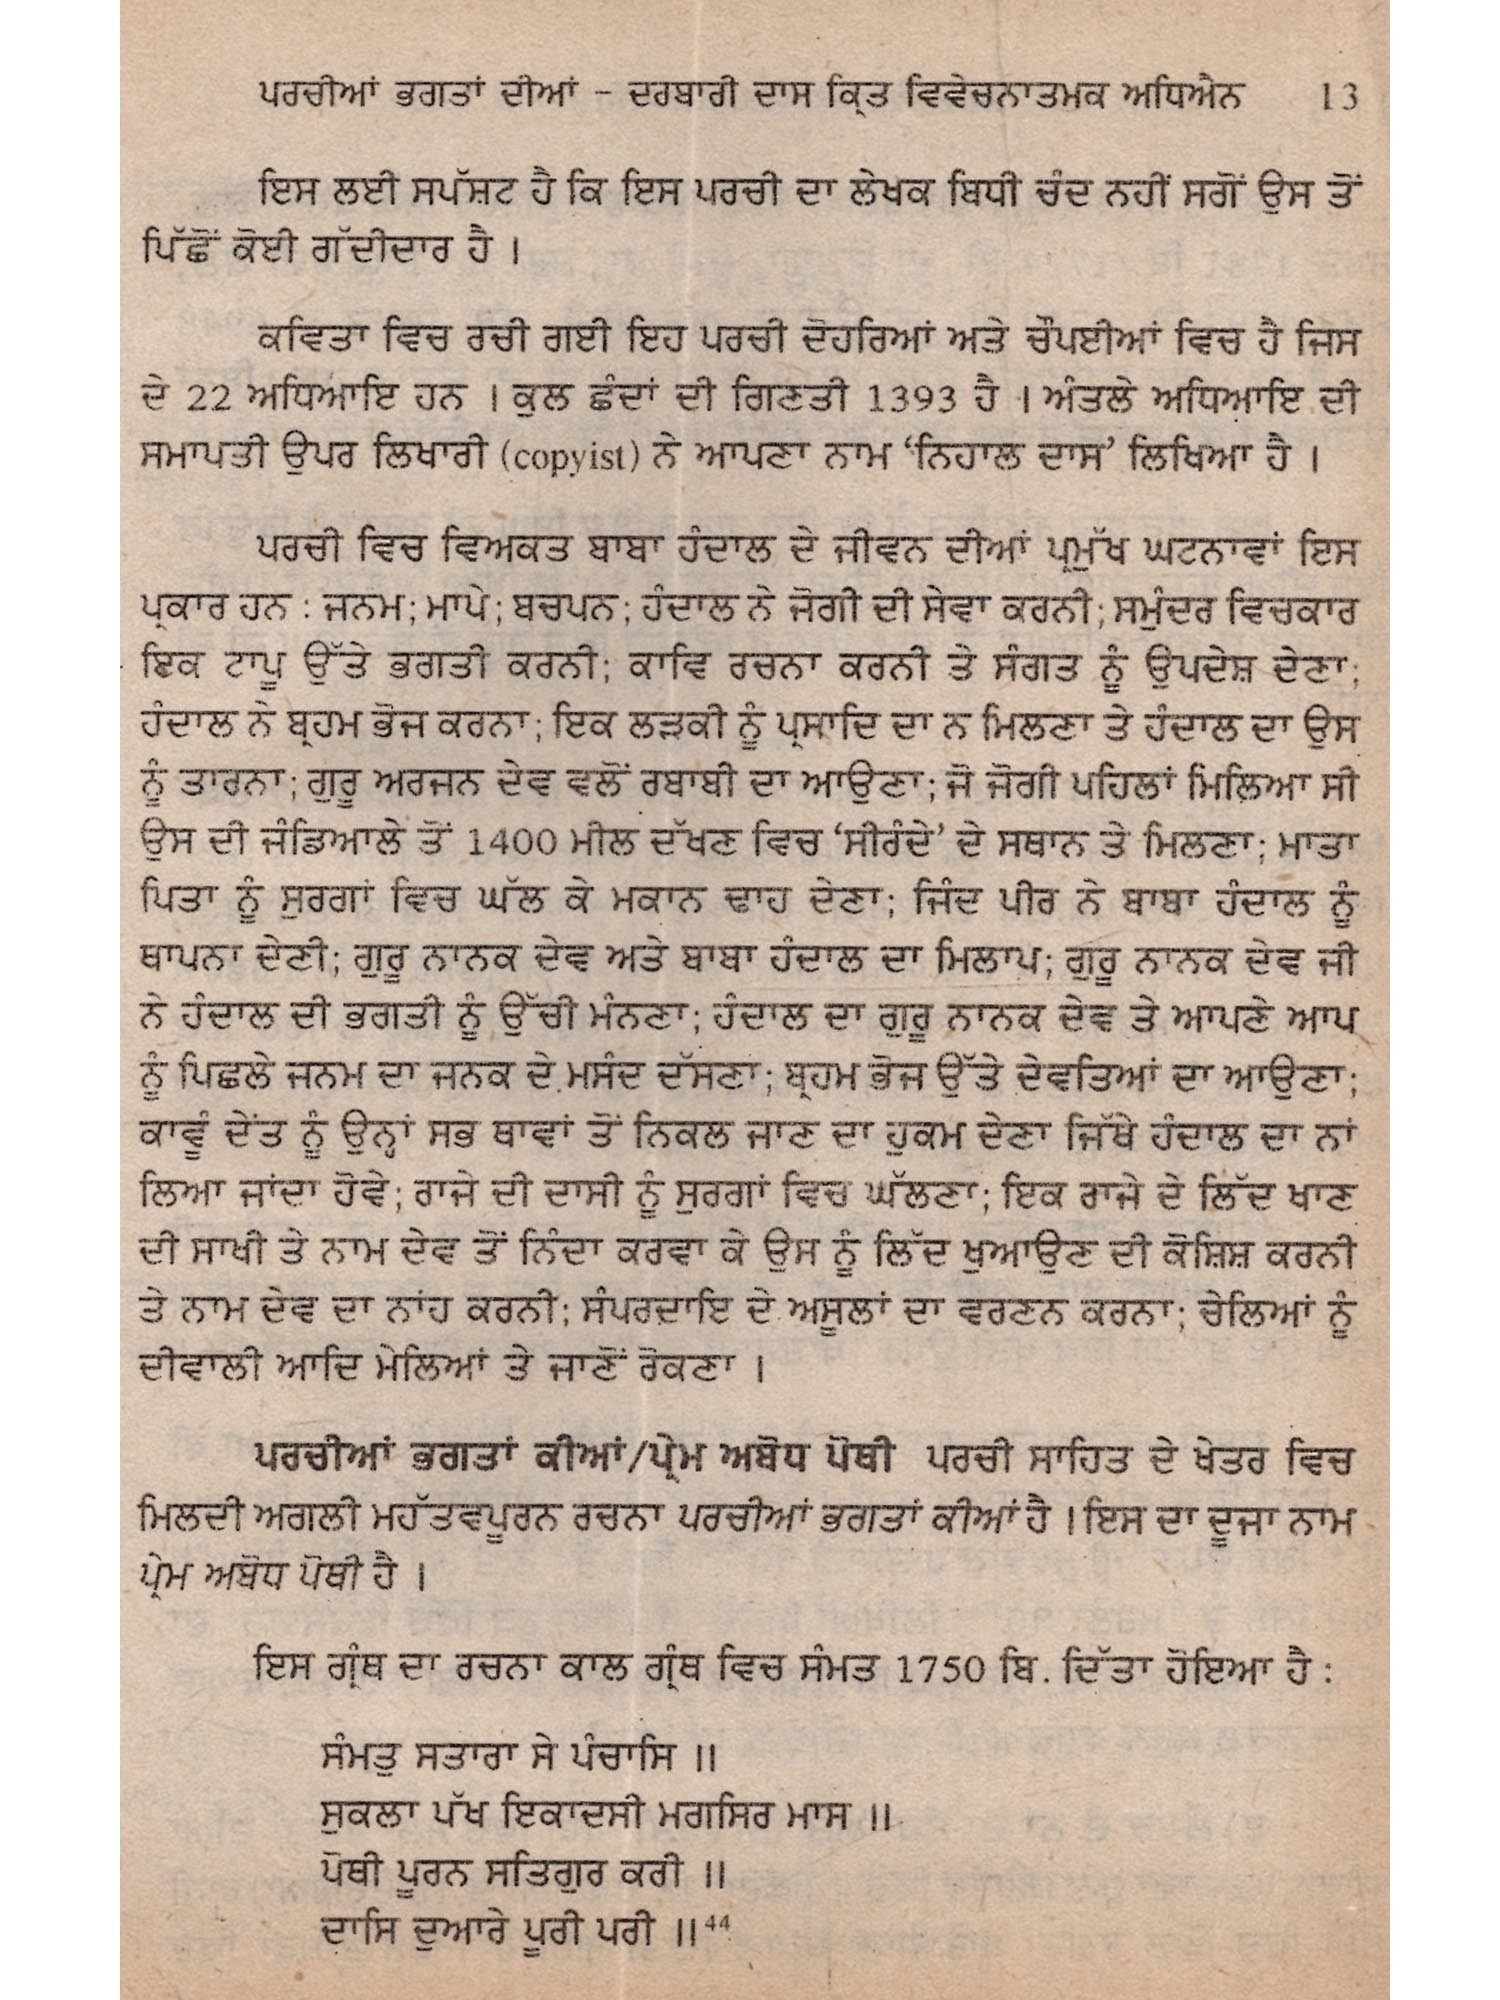 ਪਰਚੀਆਂ ਭਗਤਾਂ ਦੀਆਂ – ਦਰਬਾਰੀ ਦਾਸ ਕ੍ਰਿਤ ਵਿਵੇਚਨਾਤਮਕ ਅਧਿਐਨ 13
ਇਸ ਲਈ ਸਪੱਸ਼ਟ ਹੈ ਕਿ ਇਸ ਪਰਚੀ ਦਾ ਲੇਖਕ ਬਿਧੀ ਚੰਦ ਨਹੀਂ ਸਗੋਂ ਉਸ ਤੋਂ
ਪਿੱਛੋਂ ਕੋਈ ਗੱਦੀਦਾਰ ਹੈ ।
ਕਵਿਤਾ ਵਿਚ ਰਚੀ ਗਈ ਇਹ ਪਰਚੀ ਦੋਹਰਿਆਂ ਅਤੇ ਚੌਪਈਆਂ ਵਿਚ ਹੈ ਜਿਸ
ਦੇ 22 ਅਧਿਆਇ ਹਨ । ਕੁਲ ਛੰਦਾਂ ਦੀ ਗਿਣਤੀ 1393 ਹੈ । ਅੰਤਲੇ ਅਧਿਆਇ ਦੀ
ਸਮਾਪਤੀ ਉਪਰ ਲਿਖਾਰੀ (copyist) ਨੇ ਆਪਣਾ ਨਾਮ ‘ਨਿਹਾਲ ਦਾਸ’ ਲਿਖਿਆ ਹੈ ।
ਪਰਚੀ ਵਿਚ ਵਿਅਕਤ ਬਾਬਾ ਹੰਦਾਲ ਦੇ ਜੀਵਨ ਦੀਆਂ ਪ੍ਰਮੁੱਖ ਘਟਨਾਵਾਂ ਇਸ
ਪ੍ਰਕਾਰ ਹਨ : ਜਨਮ; ਮਾਪੇ; ਬਚਪਨ; ਹੰਦਾਲ ਨੇ ਜੋਗੀ ਦੀ ਸੇਵਾ ਕਰਨੀ; ਸਮੁੰਦਰ ਵਿਚਕਾਰ
ਇਕ ਟਾਪੂ ਉੱਤੇ ਭਗਤੀ ਕਰਨੀ; ਕਾਵਿ ਰਚਨਾ ਕਰਨੀ ਤੇ ਸੰਗਤ ਨੂੰ ਉਪਦੇਸ਼ ਦੇਣਾ;
ਹੰਦਾਲ ਨੇ ਬ੍ਰਹਮ ਭੋਜ ਕਰਨਾ; ਇਕ ਲੜਕੀ ਨੂੰ ਪ੍ਰਸਾਦਿ ਦਾ ਨ ਮਿਲਣਾ ਤੇ ਹੰਦਾਲ ਦਾ ਉਸ
ਨੂੰ ਤਾਰਨਾ; ਗੁਰੂ ਅਰਜਨ ਦੇਵ ਵਲੋਂ ਰਬਾਬੀ ਦਾ ਆਉਣਾ; ਜੋ ਜੋਗੀ ਪਹਿਲਾਂ ਮਿਲਿਆ ਸੀ
ਉਸ ਦੀ ਜੰਡਿਆਲੇ ਤੋਂ 1400 ਮੀਲ ਦੱਖਣ ਵਿਚ ‘ਸੀਰੰਦੇ’ ਦੇ ਸਥਾਨ ਤੇ ਮਿਲਣਾ; ਮਾਤਾ
ਪਿਤਾ ਨੂੰ ਸੁਰਗਾਂ ਵਿਚ ਘੱਲ ਕੇ ਮਕਾਨ ਢਾਹ ਦੇਣਾ; ਜਿੰਦ ਪੀਰ ਨੇ ਬਾਬਾ ਹੰਦਾਲ ਨੂੰ
ਥਾਪਨਾ ਦੇਣੀ; ਗੁਰੂ ਨਾਨਕ ਦੇਵ ਅਤੇ ਬਾਬਾ ਹੰਦਾਲ ਦਾ ਮਿਲਾਪ; ਗੁਰੂ ਨਾਨਕ ਦੇਵ ਜੀ
ਨੇ ਹੰਦਾਲ ਦੀ ਭਗਤੀ ਨੂੰ ਉੱਚੀ ਮੰਨਣਾ; ਹੰਦਾਲ ਦਾ ਗੁਰੂ ਨਾਨਕ ਦੇਵ ਤੇ ਆਪਣੇ ਆਪ
ਨੂੰ ਪਿਛਲੇ ਜਨਮ ਦਾ ਜਨਕ ਦੇ ਮਸੰਦ ਦੱਸਣਾ; ਬ੍ਰਹਮ ਭੋਜ ਉੱਤੇ ਦੇਵਤਿਆਂ ਦਾ ਆਉਣਾ;
ਕਾਵੂੰ ਦੇਂਤ ਨੂੰ ਉਨ੍ਹਾਂ ਸਭ ਥਾਵਾਂ ਤੋਂ ਨਿਕਲ ਜਾਣ ਦਾ ਹੁਕਮ ਦੇਣਾ ਜਿੱਥੇ ਹੰਦਾਲ ਦਾ ਨਾਂ
ਲਿਆ ਜਾਂਦਾ ਹੋਵੇ; ਰਾਜੇ ਦੀ ਦਾਸੀ ਨੂੰ ਸੁਰਗਾਂ ਵਿਚ ਘੱਲਣਾ; ਇਕ ਰਾਜੇ ਦੇ ਲਿੱਦ ਖਾਣ
ਦੀ ਸਾਖੀ ਤੇ ਨਾਮ ਦੇਵ ਤੋਂ ਨਿੰਦਾ ਕਰਵਾ ਕੇ ਉਸ ਨੂੰ ਲਿੱਦ ਖੁਆਉਣ ਦੀ ਕੋਸ਼ਿਸ਼ ਕਰਨੀ
ਤੇ ਨਾਮ ਦੇਵ ਦਾ ਨਾਂਹ ਕਰਨੀ; ਸੰਪਰਦਾਇ ਦੇ ਅਸੂਲਾਂ ਦਾ ਵਰਣਨ ਕਰਨਾ; ਚੇਲਿਆਂ ਨੂੰ
ਦੀਵਾਲੀ ਆਦਿ ਮੇਲਿਆਂ ਤੇ ਜਾਣੋਂ ਰੋਕਣਾ ।
ਪਰਚੀਆਂ ਭਗਤਾਂ ਕੀਆਂ/ਪ੍ਰੇਮ ਅਬੋਧ ਪੋਥੀ ਪਰਚੀ ਸਾਹਿਤ ਦੇ ਖੇਤਰ ਵਿਚ
ਮਿਲਦੀ ਅਗਲੀ ਮਹੱਤਵਪੂਰਨ ਰਚਨਾ ਪਰਚੀਆਂ ਭਗਤਾਂ ਕੀਆਂ ਹੈ । ਇਸ ਦਾ ਦੂਜਾ ਨਾਮ
ਪ੍ਰੇਮ ਅਬੋਧ ਪੋਥੀ ਹੈ ।
ਇਸ ਗ੍ਰੰਥ ਦਾ ਰਚਨਾ ਕਾਲ ਗ੍ਰੰਥ ਵਿਚ ਸੰਮਤ 1750 ਬਿ. ਦਿੱਤਾ ਹੋਇਆ ਹੈ :
ਸੰਮਤੁ ਸਤਾਰਾ ਸੇ ਪੰਚਾਸਿ ॥
ਸੁਕਲਾ ਪੱਖ ਇਕਾਦਸੀ ਮਗਸਿਰ ਮਾਸ ॥
ਪੋਥੀ ਪੂਰਨ ਸਤਿਗੁਰ ਕਰੀ ॥
ਦਾਸਿ ਦੁਆਰੇ ਪੂਰੀ ਪਰੀ ॥⁴⁴